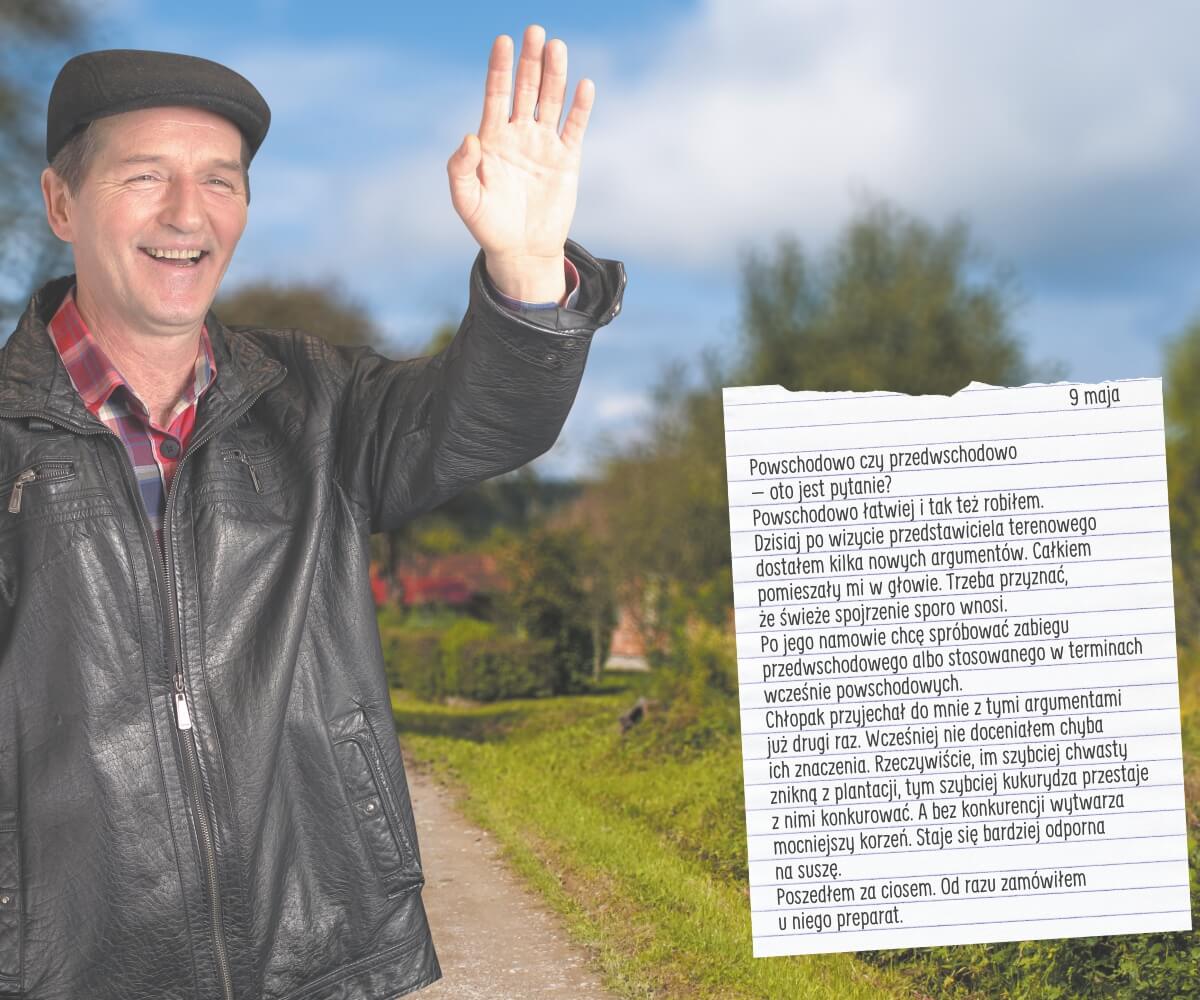 9 maja
Powschodowo czy przedwschodowo
– oto jest pytanie?
Powschodowo łatwiej i tak też robiłem.
Dzisiaj po wizycie przedstawiciela terenowego
dostałem kilka nowych argumentów. Całkiem
pomieszały mi w głowie. Trzeba przyznać,
że świeże spojrzenie sporo wnosi.
Po jego namowie chcę spróbować zabiegu
przedwschodowego albo stosowanego w terminach
wcześnie powschodowych.
Chłopak przyjechał do mnie z tymi argumentami
już drugi raz. Wcześniej nie doceniałem chyba
ich znaczenia. Rzeczywiście, im szybciej chwasty
znikną z plantacji, tym szybciej kukurydza przestaje
z nimi konkurować. A bez konkurencji wytwarza
mocniejszy korzeń. Staje się bardziej odporna
na suszę.
Poszedłem za ciosem. Od razu zamówiłem
u niego preparat.